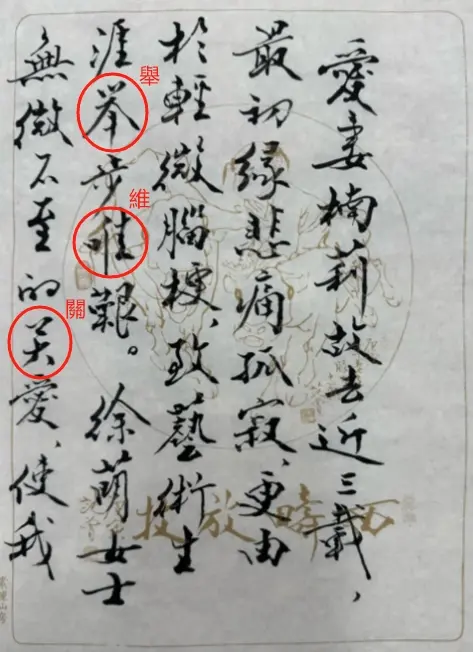 愛妻楠莉故去近三載，
最初緣悲痛孤寂、更由
於輕微腦梗，致藝術生
涯举步唯艱。徐萌女士
無微不至的关愛，使我
舉
維
關
西疇放牧